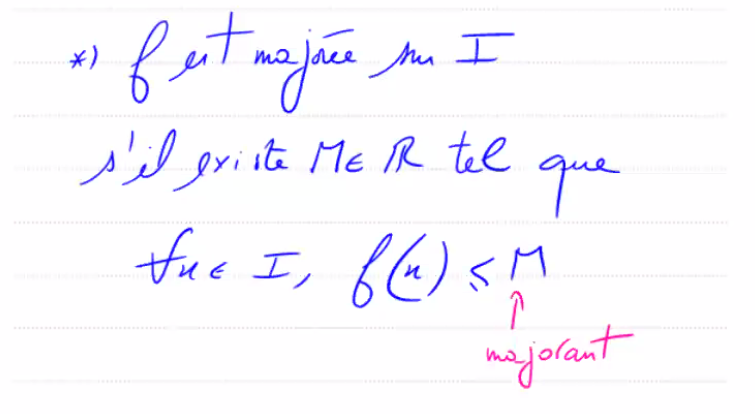 *) f est majorée sur I
s'il existe M ∈ ℝ tel que
∀x ∈ I, f(x) ≤ M
majorant